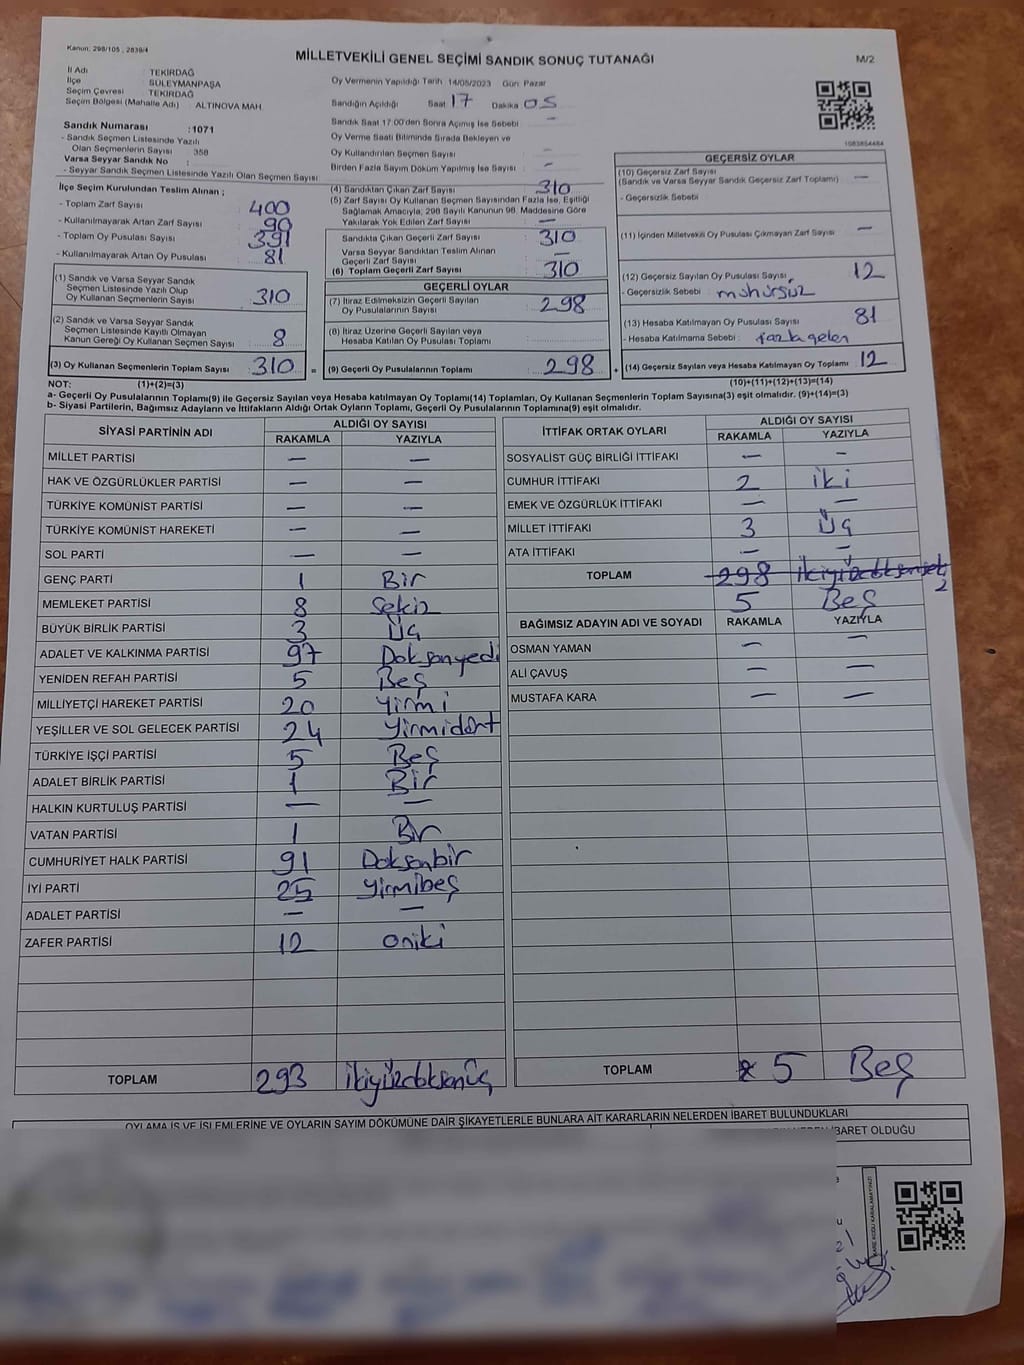 Kanun: 298/105 , 2839/4
MİLLETVEKİLİ GENEL SEÇİMİ SANDIK SONUÇ TUTANAĞI
M/2
İl Adı : TEKİRDAĞ
İlçe : SÜLEYMANPAŞA
Seçim Çevresi : TEKİRDAĞ
Seçim Bölgesi (Mahalle Adı) : ALTINOVA MAH.
Oy Vermenin Yapıldığı Tarih 14/05/2023 Gün: Pazar
Sandığın Açıldığı Saat 17 Dakika 05
Sandık Saat 17:00'den Sonra Açılmış İse Sebebi : –
Oy Verme Saati Bitiminde Sırada Bekleyen ve
Oy Kullandırılan Seçmen Sayısı –
Birden Fazla Sayım Döküm Yapılmış İse Sayısı –
1083854484
Sandık Numarası :1071
- Sandık Seçmen Listesinde Yazılı
Olan Seçmenlerin Sayısı 358
Varsa Seyyar Sandık No :
- Seyyar Sandık Seçmen Listesinde Yazılı Olan Seçmen Sayısı
İlçe Seçim Kurulundan Teslim Alınan ;
- Toplam Zarf Sayısı 400
- Kullanılmayarak Artan Zarf Sayısı 90
- Toplam Oy Pusulası Sayısı 391
- Kullanılmayarak Artan Oy Pusulası 81
(1) Sandık ve Varsa Seyyar Sandık
Seçmen Listesinde Yazılı Olup
Oy Kullanan Seçmenlerin Sayısı 310
(2) Sandık ve Varsa Seyyar Sandık
Seçmen Listesinde Kayıtlı Olmayan
Kanun Gereği Oy Kullanan Seçmen Sayısı 8
(3) Oy Kullanan Seçmenlerin Toplam Sayısı 310
(4) Sandıktan Çıkan Zarf Sayısı 310
(5) Zarf Sayısı Oy Kullanan Seçmen Sayısından Fazla İse, Eşitliği
Sağlamak Amacıyla, 298 Sayılı Kanunun 98. Maddesine Göre
Yakılarak Yok Edilen Zarf Sayısı –
Sandıkta Çıkan Geçerli Zarf Sayısı 310
Varsa Seyyar Sandıktan Teslim Alınan
Geçerli Zarf Sayısı –
(6) Toplam Geçerli Zarf Sayısı 310
GEÇERLİ OYLAR
(7) İtiraz Edilmeksizin Geçerli Sayılan
Oy Pusulalarının Sayısı 298
(8) İtiraz Üzerine Geçerli Sayılan veya
Hesaba Katılan Oy Pusulası Toplamı
= (9) Geçerli Oy Pusulalarının Toplamı 298 +
GEÇERSİZ OYLAR
(10) Geçersiz Zarf Sayısı –
(Sandık ve Varsa Seyyar Sandık Geçersiz Zarf Toplamı)
- Geçersizlik Sebebi
(11) İçinden Milletvekili Oy Pusulası Çıkmayan Zarf Sayısı –
(12) Geçersiz Sayılan Oy Pusulası Sayısı 12
- Geçersizlik Sebebi : mühürsüz
(13) Hesaba Katılmayan Oy Pusulası Sayısı 81
- Hesaba Katılmama Sebebi : fazla gelen
(14) Geçersiz Sayılan veya Hesaba Katılmayan Oy Toplamı 12
NOT: (1)+(2)=(3)
(10)+(11)+(12)+(13)=(14)
a- Geçerli Oy Pusulalarının Toplamı(9) ile Geçersiz Sayılan veya Hesaba katılmayan Oy Toplamı(14) Toplamları, Oy Kullanan Seçmenlerin Toplam Sayısına(3) eşit olmalıdır. (9)+(14)=(3)
b- Siyasi Partilerin, Bağımsız Adayların ve İttifakların Aldığı Ortak Oyların Toplamı, Geçerli Oy Pusulalarının Toplamına(9) eşit olmalıdır.
SİYASİ PARTİNİN ADI
ALDIĞI OY SAYISI
RAKAMLA YAZIYLA
MİLLET PARTİSİ – –
HAK VE ÖZGÜRLÜKLER PARTİSİ – –
TÜRKİYE KOMÜNİST PARTİSİ – –
TÜRKİYE KOMÜNİST HAREKETİ – –
SOL PARTİ – –
GENÇ PARTİ 1 Bir
MEMLEKET PARTİSİ 8 Sekiz
BÜYÜK BİRLİK PARTİSİ 3 Üç
ADALET VE KALKINMA PARTİSİ 97 Doksanyedi
YENİDEN REFAH PARTİSİ 5 Beş
MİLLİYETÇİ HAREKET PARTİSİ 20 Yirmi
YEŞİLLER VE SOL GELECEK PARTİSİ 24 Yirmidört
TÜRKİYE İŞÇİ PARTİSİ 5 Beş
ADALET BİRLİK PARTİSİ 1 Bir
HALKIN KURTULUŞ PARTİSİ – –
VATAN PARTİSİ 1 Bir
CUMHURİYET HALK PARTİSİ 91 Doksanbir
İYİ PARTİ 25 Yirmibeş
ADALET PARTİSİ – –
ZAFER PARTİSİ 12 oniki
TOPLAM 293 ikiyüzdoksanüç
İTTİFAK ORTAK OYLARI
ALDIĞI OY SAYISI
RAKAMLA YAZIYLA
SOSYALİST GÜÇ BİRLİĞİ İTTİFAKI – –
CUMHUR İTTİFAKI 2 iki
EMEK VE ÖZGÜRLÜK İTTİFAKI – –
MİLLET İTTİFAKI 3 Üç
ATA İTTİFAKI – –
TOPLAM 298 ikiyüzdoksansekiz
5 Beş
BAĞIMSIZ ADAYIN ADI VE SOYADI RAKAMLA YAZIYLA
OSMAN YAMAN – –
ALİ ÇAVUŞ – –
MUSTAFA KARA – –
TOPLAM 5 Beş
OYLAMA İŞ VE İŞLEMLERİNE VE OYLARIN SAYIM DÖKÜMÜNE DAİR ŞİKAYETLERLE BUNLARA AİT KARARLARIN NELERDEN İBARET BULUNDUKLARI
NEDEN İBARET OLDUĞU
KARE KODU KARALAMAYINIZ!